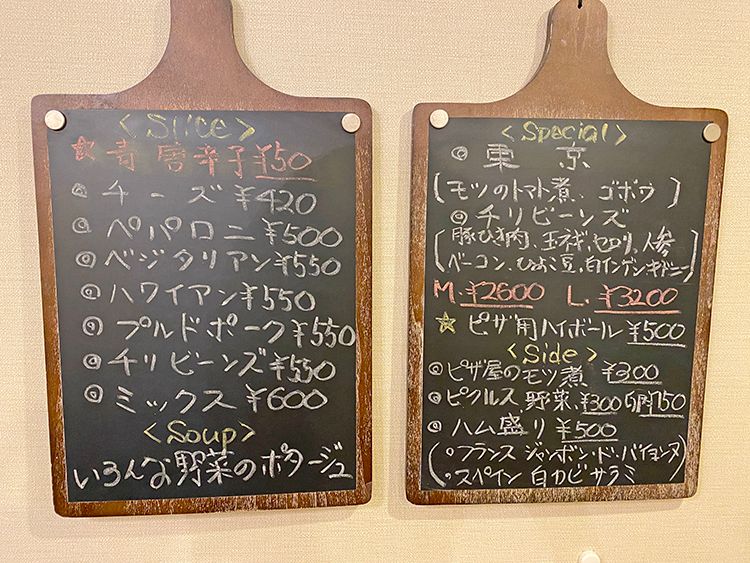 <Slice>
☆青唐辛子¥50
◎チーズ ¥420
◎ペパロニ ¥500
◎ベジタリアン ¥550
◎ハワイアン ¥550
◎プルドポーク ¥550
◎チリビーンズ ¥550
◎ミックス ¥600
<Soup>
いろんな野菜のポタージュ
<Special>
◎東京
(モツのトマト煮、ゴボウ)
◎チリビーンズ
(豚ひき肉、玉ネギ、セロリ、人参
ベーコン、ひよこ豆、白インゲン、キドニー)
M.¥2600 L.¥3200
☆ピザ用ハイボール ¥500
<Side>
◎ピザ屋のモツ煮 ¥300
◎ピクルス、野菜、¥300 ¥150
◎ハム盛り ¥500
(◦フランス ジャンボン・ド・バイヨンヌ
◦スペイン 白カビサラミ)